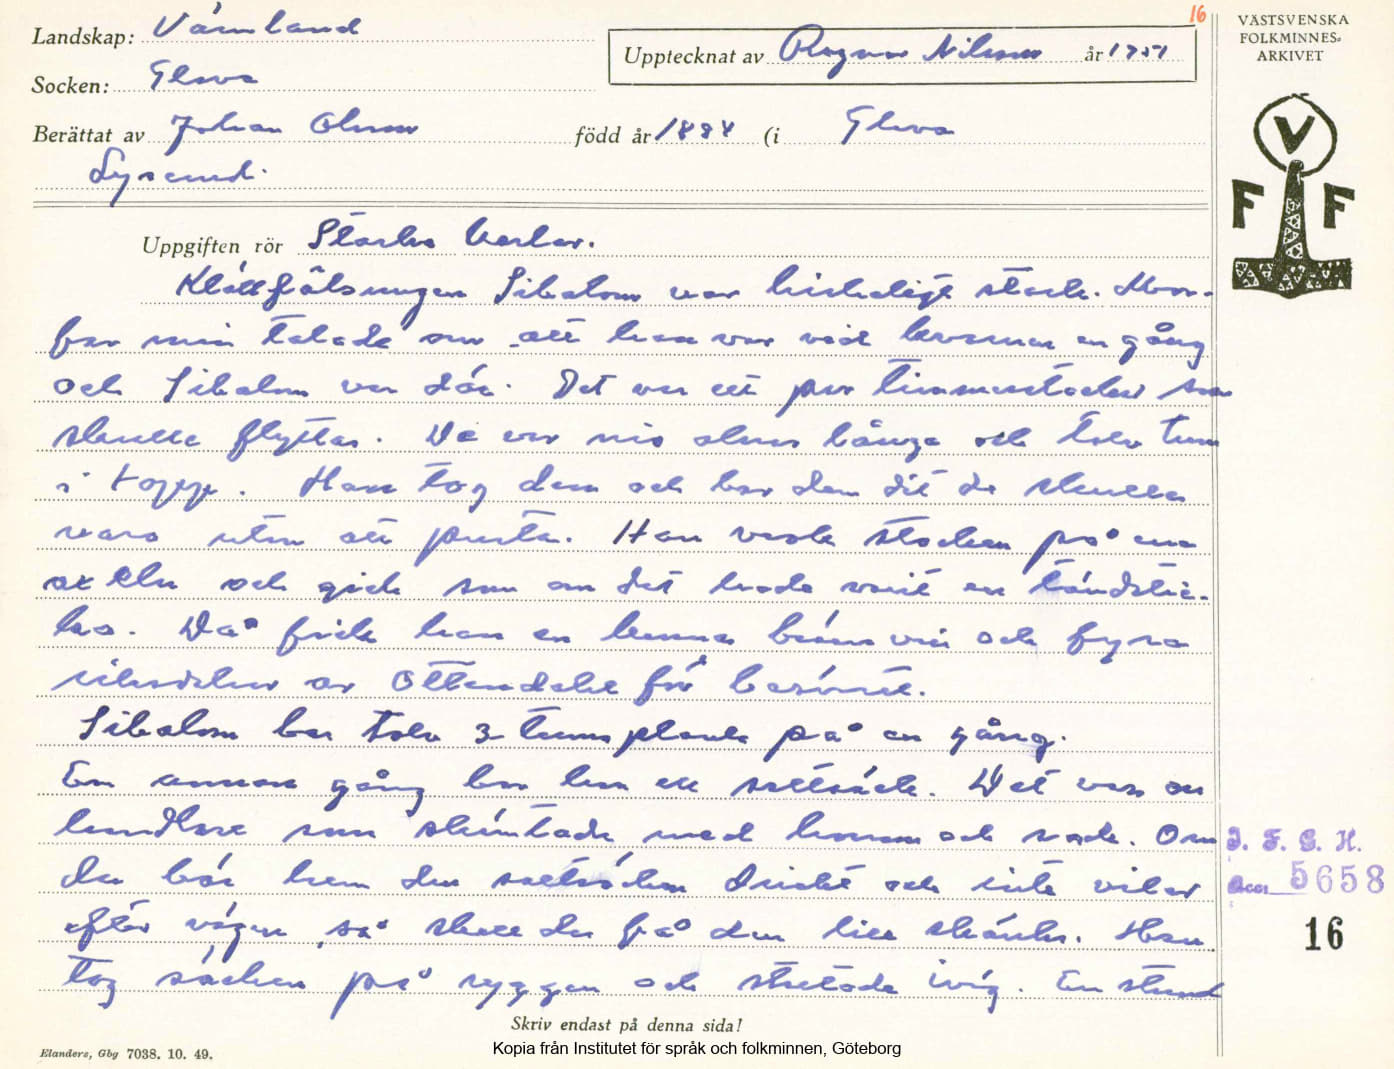 16
Landskap: Värmland
Upptecknat av Ragnar Nilsson år 1951
VÄSTSVENSKA
FOLKMINNES-
ARKIVET
Socken: Glava
Berättat av Johan Olsson född år 1884 (i Glava
Lysend.
V
F F
Uppgiften rör Starka karlar.
Klättfjälsmyren Sibalom var hiskeligt stark. Mor-
far min talade om att han var vid kvarnen en gång
och Sibalom var där. Det var ett par timmerstockar som
skulle flyttas. De var nio alnar långa och tolv tum
i topp. Han tog dem och bar dem dit de skulle
vara utan att pusta. Han vräk stocken på ena
axeln och gick som om det hade varit en tändstic-
ka. Då fick han en kanna bränvin och fyra
av ättendelar för besväret.
Sibalom bar tolv 3 tums plank på en gång.
En annan gång bar han en saltsäck. Det var en
handlare som skämtade med honom och sade. Om
du bär hem den saltsäcken direkt och inte vilar
efter vägen så skall du få den till skänks. Han
tog säcken på ryggen och stretade iväg. En stund
I. F. G. H.
Acc. 5658
16
Skriv endast på denna sida!
Elanders, Gbg 7038. 10. 49.
Kopia från Institutet för språk och folkminnen, Göteborg